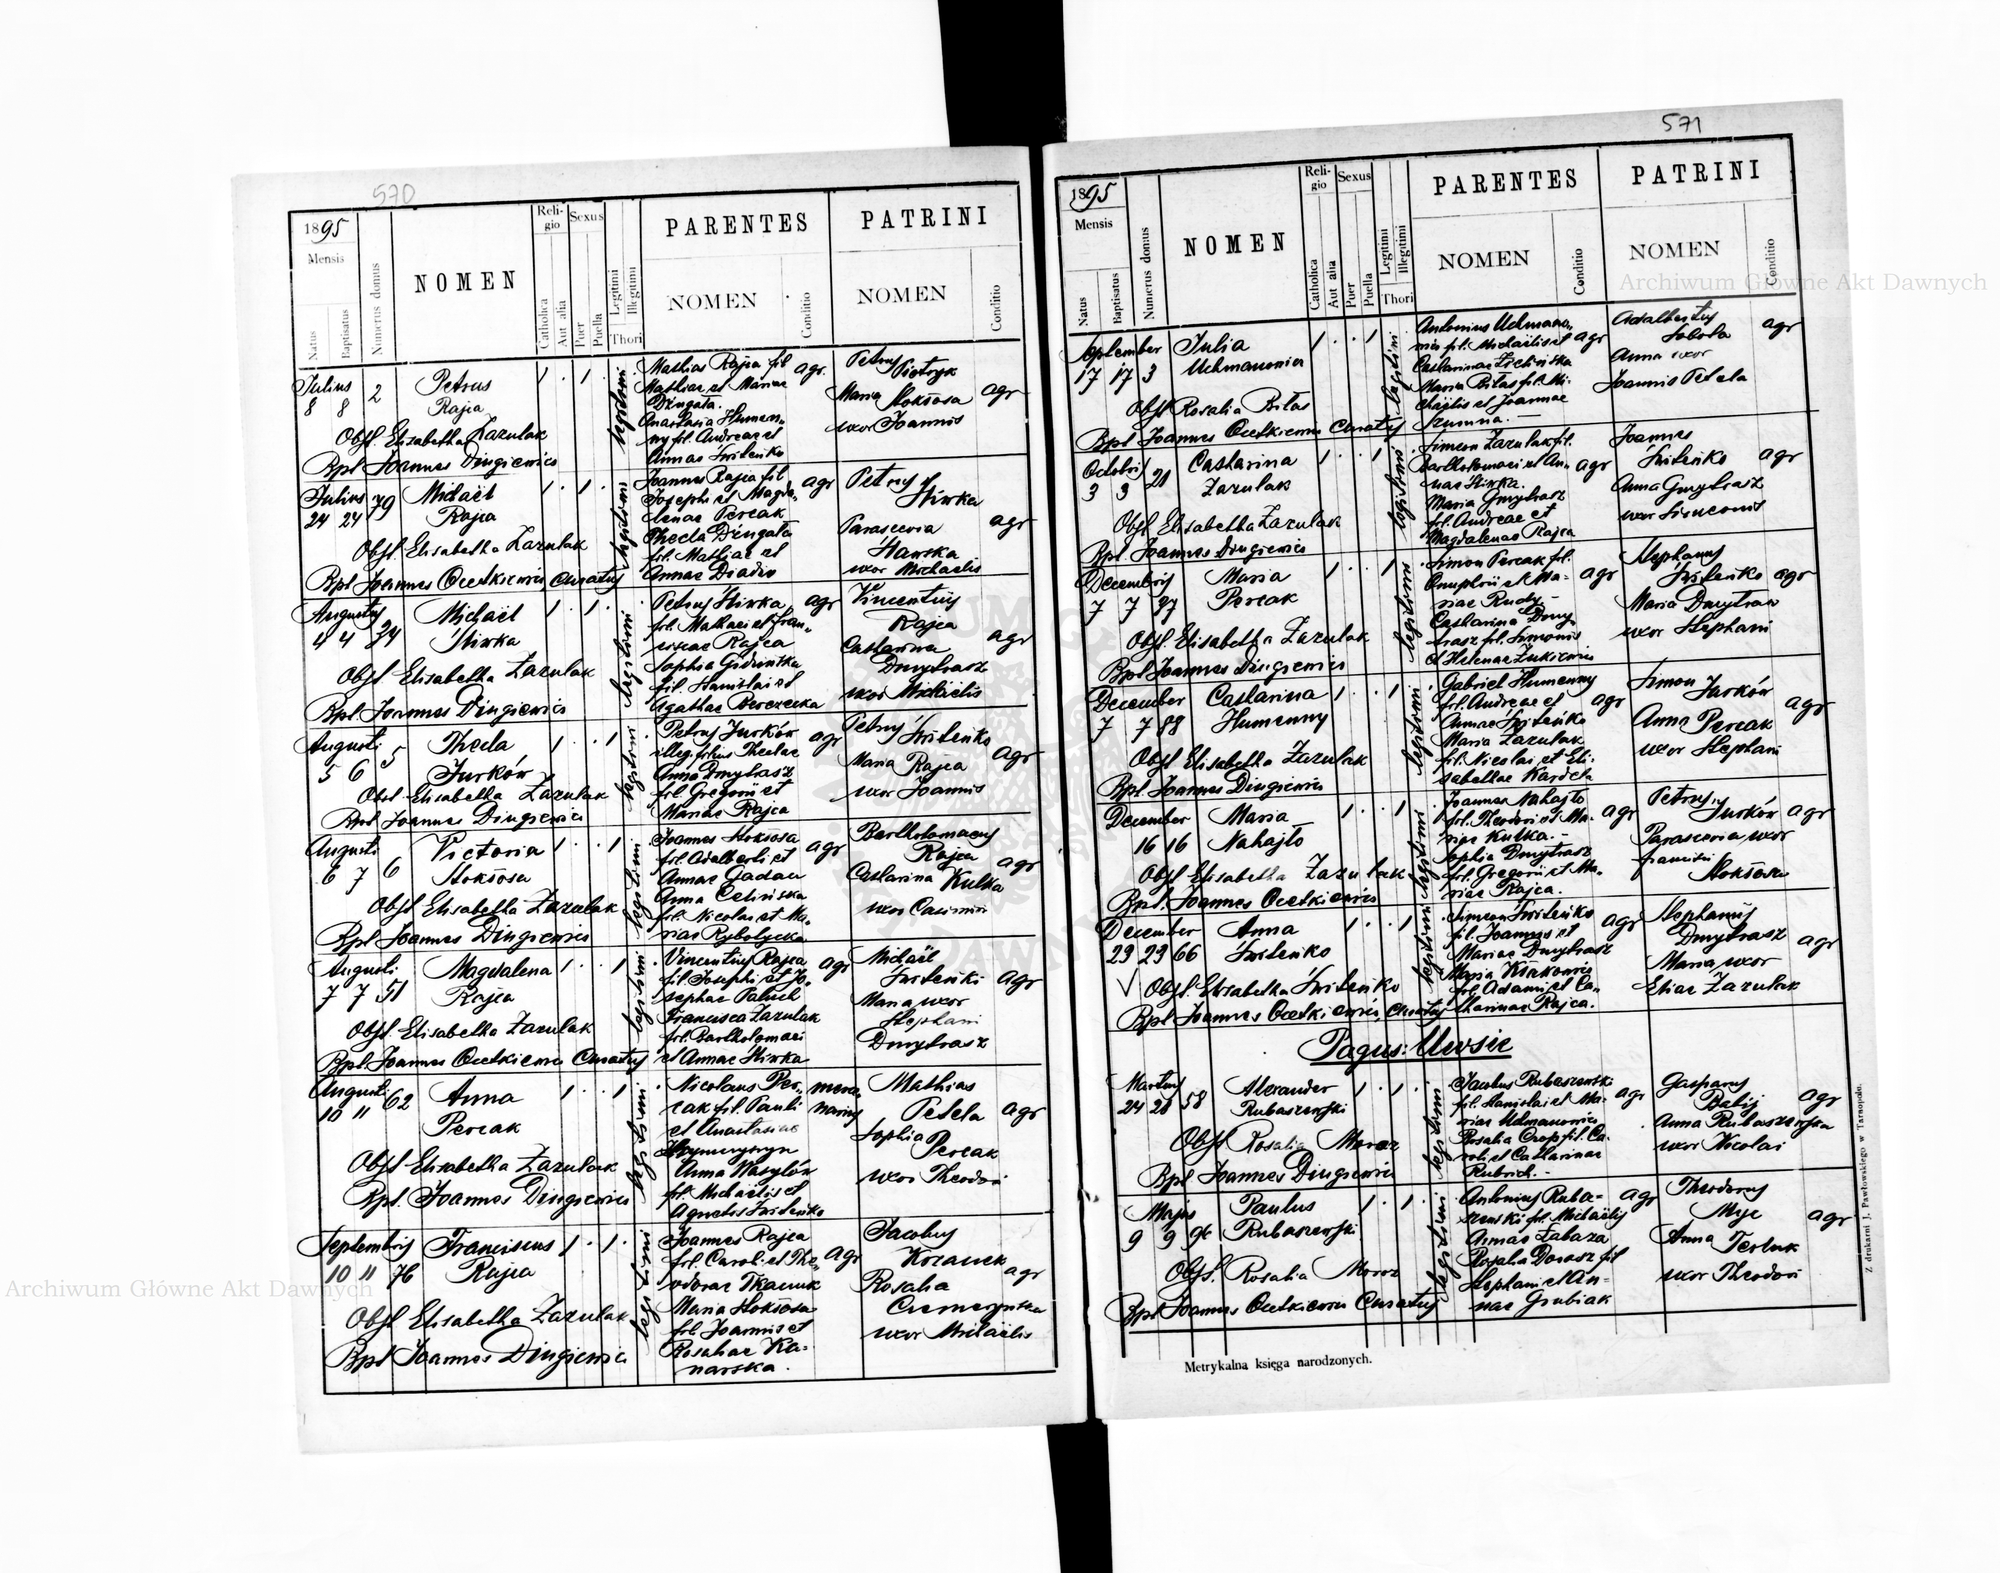 570
1895
Mensis
Natus
Baptisatus
Numerus domus
NOMEN
Religio
Catholica
Aut alia
Sexus
Puer
Puella
Legitimi
Illegitimi
Thori
PARENTES
NOMEN
Conditio
PATRINI
NOMEN
Conditio
Julius
8 8 2
Petrus
Rajca
1 . 1 .
legitimi
Mathias Rajca fil
Mathiae et Mariae
Dzugata.
Anastasia Humen-
ny fil. Andreae et
Annae Switeńko
agr.
Petrus
Pietryk
Maria Stoksosa
uxor Joannis
agr
Obst. Elisabetha Zazulak
Bpt Joannes Dingiewicz
Julius
24 24 79
Michaël
Rajca
1 . 1 .
legitimi
Joannes Rajca fil
Josephi et Magda-
lenae Percak
Thecla Dzugata
fil. Mathiae et
Annae Diadio
agr
Petrus
Hirka
Parascevia
Hawska
uxor Michaelis
agr
Obst. Elisabetha Zazulak
Bpt Joannes Ocetkiewicz, Curatus
Augustus
4 4 24
Michaël
Hirka
1 . 1 .
legitimi
Petrus Hirka
fil. Mathaei et Fran-
ciscae Rajca
Sophia
fil. Stanislai et
Agathae
agr
Vincentius
Rajca
Catharina
Dmytrasz
uxor Michaelis
agr
Obst Elisabetha Zazulak
Bpt. Joannes Dingiewicz
Augusti
5 6 5
Thecla
Jurków
1 . . 1
legitimi
Petrus Jurków
illeg. filius Theclae
Anna Dmytrasz
fil. Gregorii et
Mariae Rajca
agr
Petrus Switeńko
Maria Rajca
uxor Joannis
agr
Obst. Elisabetha Zazulak
Bpt Joannes Dingiewicz
Augusti
6 7 6
Victoria
Stoksosa
1 . . 1
legitimi
Joannes Stoksosa
fil. Adalberti et
Annae Gadau
Anna Celińska
fil. Nicolai et Ma-
riae Rybotycka
agr
Bartholomaeus
Rajca
Catharina Kulka
uxor Casimiri
agr
Obst Elisabetha Zazulak
Bpt Joannes Dingiewicz
Augusti
7 7 51
Magdalena
Rajca
1 . . 1
legitimi
Vincentius Rajca
fil. Josephi et Jo-
sephae Paluch
Francisca Zazulak
fil. Bartholomaei
et Annae Hirka
agr
Michaël
Switeńki
Maria uxor
Stephani
Dmytrasz
agr
Obst. Elisabetha Zazulak
Bpt. Joannes Ocetkiewicz Curatus
Augusti
10 11 62
Anna
Percak
1 . . 1
legitimi
Nicolaus Per-
cak fil. Pauli
et Anastasiae
Anna Wasylów
fil. Michaëlis et
Agnetis Switeńko
merce-
narius
Mathias
Petela
Sophia
Percak
uxor Theodori
agr
Obst. Elisabetha Zazulak
Bpt. Joannes Dingiewicz
Septembris
10 11 76
Franciscus
Rajca
1 . 1 .
legitimi
Joannes Rajca
fil. Caroli et The-
odorae Tkaczuk
Maria Stoksosa
fil. Joannis et
Rosaliae Ka-
narska.
agr
Jacobus
Kozaneck
Rosalia
Czemerynska
uxor Michaëlis
agr
Obst Elisabetha Zazulak
Bpt Joannes Dingiewicz
571
1895
Mensis
Natus
Baptisatus
Numerus domus
NOMEN
Religio
Catholica
Aut alia
Sexus
Puer
Puella
Legitimi
Illegitimi
Thori
PARENTES
NOMEN
Conditio
PATRINI
NOMEN
Conditio
September
17 17 3
Julia
Uchmanowicz
1 . . 1
legitimi
Antonius Uchmano-
wicz fil. Michaëlis et
Catharinae Zielińska
Maria Biłas fil. Mi-
chaëlis et Joannae
Szumna.
agr
Adalbertus
Sobota
Anna uxor
Joannis Petela
agr
Obst Rosalia Biłas
Bpt Joannes Ocetkiewicz Curatus
Octobris
3 3 21
Catharina
Zazulak
1 . . 1
legitimi
Simeon Zazulak fil.
Bartholomaei et An-
nae Hirka.
Maria Gmytrasz
fil. Andreae et
Magdalenae Rajca
agr
Joannes
Switeńko
Anna Gmytrasz
uxor Simeonis
agr
Obst Elisabetha Zazulak
Bpt. Joannes Dingiewicz
Decembris
7 7 27
Maria
Percak
1 . . 1
legitimi
Simon Percak fil.
Onuphrii et Ma-
riae Rudy -
Catharina Dmy-
trasz fil. Simonis
et Helenae Zukiewicz
agr
Stephanus
Switeńko
Maria Dmytrasz
uxor Stephani
agr
Obst. Elisabetha Zazulak
Bpt Joannes Dingiewicz
December
7 7 88
Catharina
Humenny
1 . . 1
legitimi
Gabriel Humenny
fil. Andreae et
Annae Switeńko
Maria Zazulak
fil. Nicolai et Eli-
sabethae Kardela
agr
Simon
Jurków
Anna Percak
uxor Stephani
agr
Obst Elisabetha Zazulak
Bpt Joannes Dingiewicz
December
16 16
Maria
Nahajło
1 . . 1
legitimi
Joannes Nahajło
fil. Theodori et Ma-
riae Kulka.-
Sophia Dmytrasz
fil. Gregorii et Ma-
riae Rajca.
agr
Petrus
Jurków
Parascevia uxor
Francisci
Stoksosa
agr
Obst Elisabetha Zazulak
Bpt. Joannes Ocetkiewicz
December
23 23 66
Anna
Switeńko
1 . . 1
legitimi
Simeon Switeńko
fil. Joannis et
Mariae Dmytrasz
Maria
fil. Adami et Ca-
tharinae Rajca.
agr
Stephanus
Dmytrasz
Maria uxor
Eliae Zazulak
agr
Obst. Elisabetha Switeńko
Bpt Joannes Ocetkiewicz, Curatus
Pagus: Uwsie
Martius
24 28 58
Alexander
Rubaszewski
1 . 1 .
legitimi
Jacobus Rubaszewski
fil. Stanislai et Ma-
riae Uchmanowicz
Rosalia Crop fil. Ca-
roli et Catharinae
Rubrich.-
agr
Gasparus
Babij
Anna Rubaszewska
uxor Nicolai
agr
Obst Rosalia Moroz
Bpt Joannes Dingiewicz
Majus
9 9 96
Paulus
Rubaszewski
1 . 1 .
legitimi
Antonius Ruba-
szewski fil. Michaëlis
Annae Łabaza
Rosalia Dorosz fil
Stephani et An-
nae Grubiak
agr
Theodorus
Myc
Anna Terluk
uxor Theodori
agr
Obst. Rosalia Moroz
Bpt Joannes Ocetkiewicz Curatus
Metrykalna księga narodzonych.
Z drukarni J. Pawłowskiego w Tarnopolu.
Archiwum Główne Akt Dawnych
Archiwum Główne Akt Dawnych